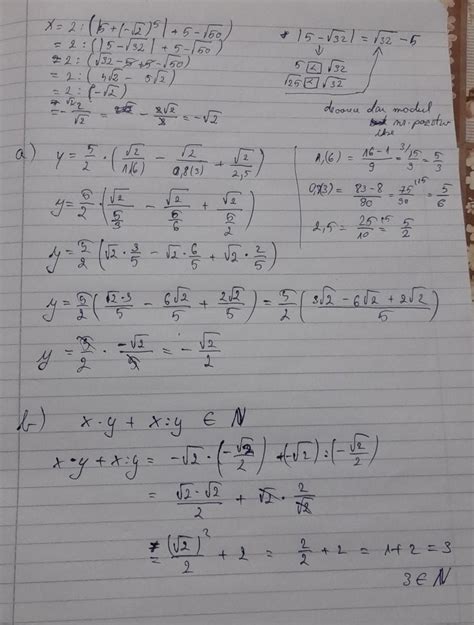 x = 2 : (|5 + (-√2)⁵| + 5 - √50)
= 2 : (|5 - √32| + 5 - √50)
= 2 : (√32 - 5 + 5 - √50)
= 2 : (4√2 - 5√2)
= 2 : (-√2)
= - 2/√2 = - 2√2/2 = -√2
* |5 - √32| = √32 - 5
5 < √32
√25 < √32
modul
a) y = 5/2 · (√2/1,(6) - √2/0,8(3) + √2/2,5)
y = 5/2 · (√2/(5/3) - √2/(5/6) + √2/(5/2))
y = 5/2 (√2 · 3/5 - √2 · 6/5 + √2 · 2/5)
y = 5/2 (√2·3/5 - 6√2/5 + 2√2/5) = 5/2 (3√2 - 6√2 + 2√2/5)
y = 5/2 · -√2/5 = - √2/2
1,(6) = 16-1/9 = 15/9 = 5/3
0,8(3) = 83-8/90 = 75/90 = 5/6
2,5 = 25/10 = 5/2
b) x · y + x : y ∈ N
x · y + x : y = -√2 · (-√2/2) + (-√2) : (-√2/2)
= √2 · √2/2 + √2 · 2/√2
= (√2)²/2 + 2 = 2/2 + 2 = 1 + 2 = 3
3 ∈ N